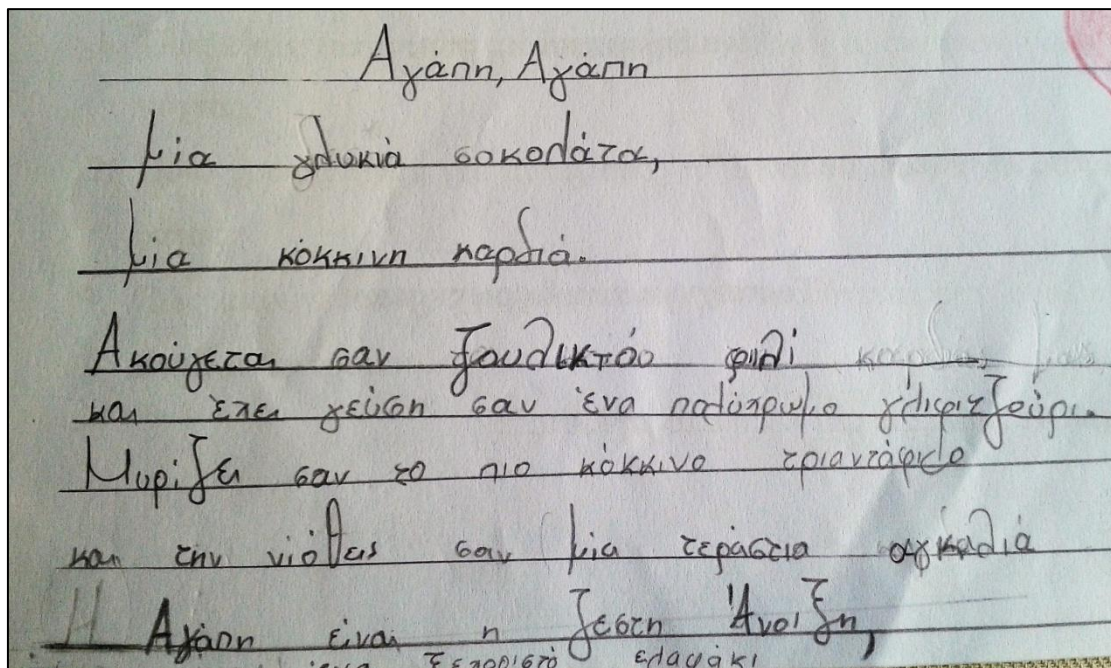 Αγάπη, Αγάπη
Μία γλυκιά σοκολάτα,
Μία κόκκινη καρδιά.
Ακούγεται σαν ζουλικτόο φιλί
και έχει γεύση σαν ένα πολύχρωμο γλιφιτζούρι.
Μυρίζει σαν το πιο κόκκινο τριαντάφυλο
και την νιόθεις σαν μία τεράστια αγκαλιά
Η Αγάπη είναι η ζεστή Άνοιξη,
ξεχοριστό ελαφάκι